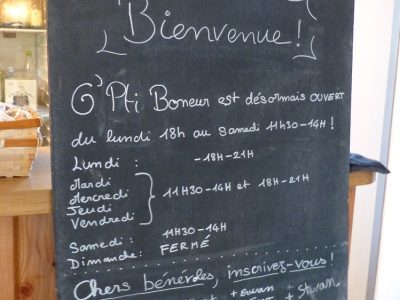 Bienvenue !
G'Pti Boneur est désormais OUVERT
du lundi 18h au samedi 11H30-14H !
Lundi : -18H-21H
Mardi
Mercredi
Jeudi
Vendredi
11H30-14H et 18H-21H
Samedi : 11H30-14H
Dimanche : FERMÉ
Chers bénévoles, inscrivez-vous !
+ Erwan + Erwan